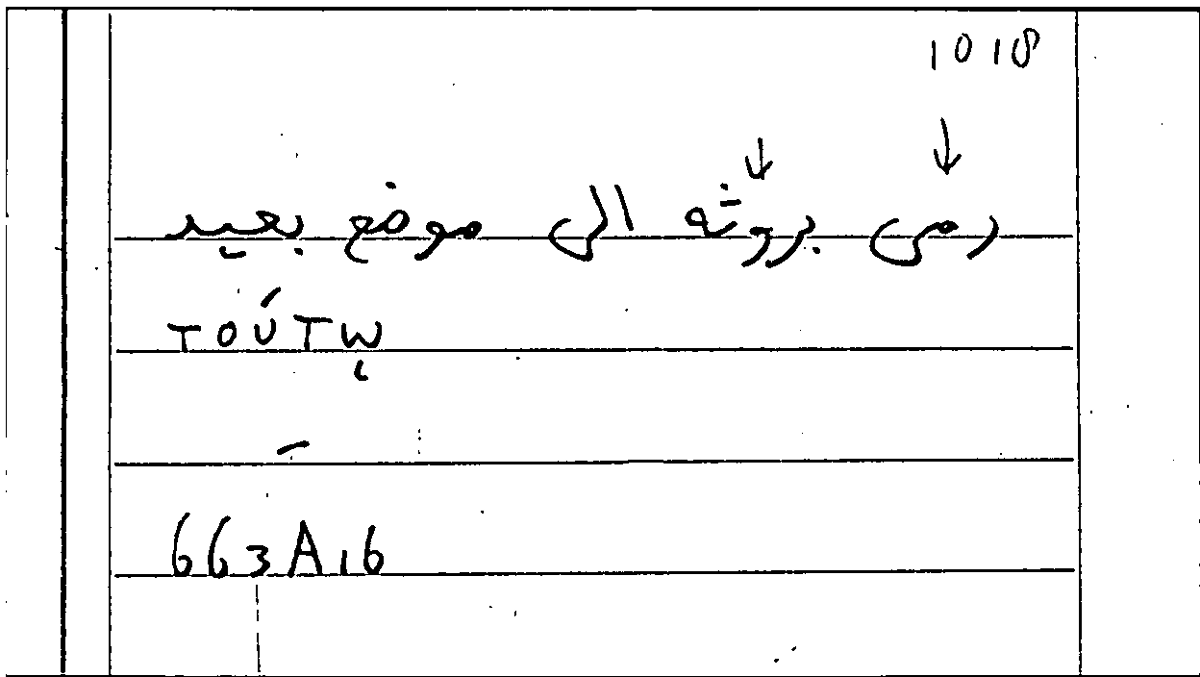 1018
↓ ↓
رمى بروثه الى موضع بعيد
τούτῳ
663A16